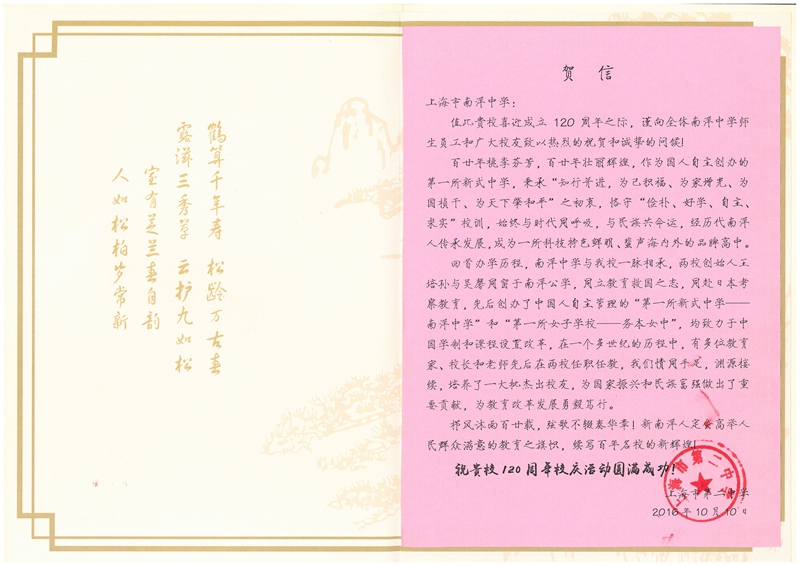 鹤算千年寿 松龄万古春
露滋三秀草 云护九如松
室有芝兰春自韵
人如松柏岁常新
贺 信
上海市南洋中学：
值此贵校喜迎成立 120 周年之际，谨向全体南洋中学师
生员工和广大校友致以热烈的祝贺和诚挚的问候！
百廿年桃李芬芳，百廿年壮丽辉煌，作为国人自主创办的
第一所新式中学，秉承“知行并进，为己积福、为家增光、为
国桢干、为天下肇和平”之初衷，恪守“俭朴、好学、自主、
求实”校训，始终与时代同呼吸，与民族共命运，经历代南洋
人传承发展，成为一所科技特色鲜明、蜚声海内外的品牌高中。
回首办学历程，南洋中学与我校一脉相承，两校创始人王
培孙与吴馨同留于南洋公学，同立教育救国之志，同赴日本考
察教育，先后创办了中国人自主管理的“第一所新式中学——
南洋中学”和“第一所女子学校——务本女中”，均致力于中
国学制和课程设置改革，在一个多世纪的历程中，有多位教育
家、校长和老师先后在两校任职任教，我们情同手足，渊源接
续，培养了一大批杰出校友，为国家振兴和民族富强做出了重
要贡献，为教育改革发展勇毅笃行。
栉风沐雨百廿载，弦歌不辍奏华章！新南洋人定会高举人
民群众满意的教育之旗帜，续写百年名校的新辉煌！
祝贵校 120 周年校庆活动圆满成功！
上海市第二中学
2016 年 10 月 10 日
上海市第二中学